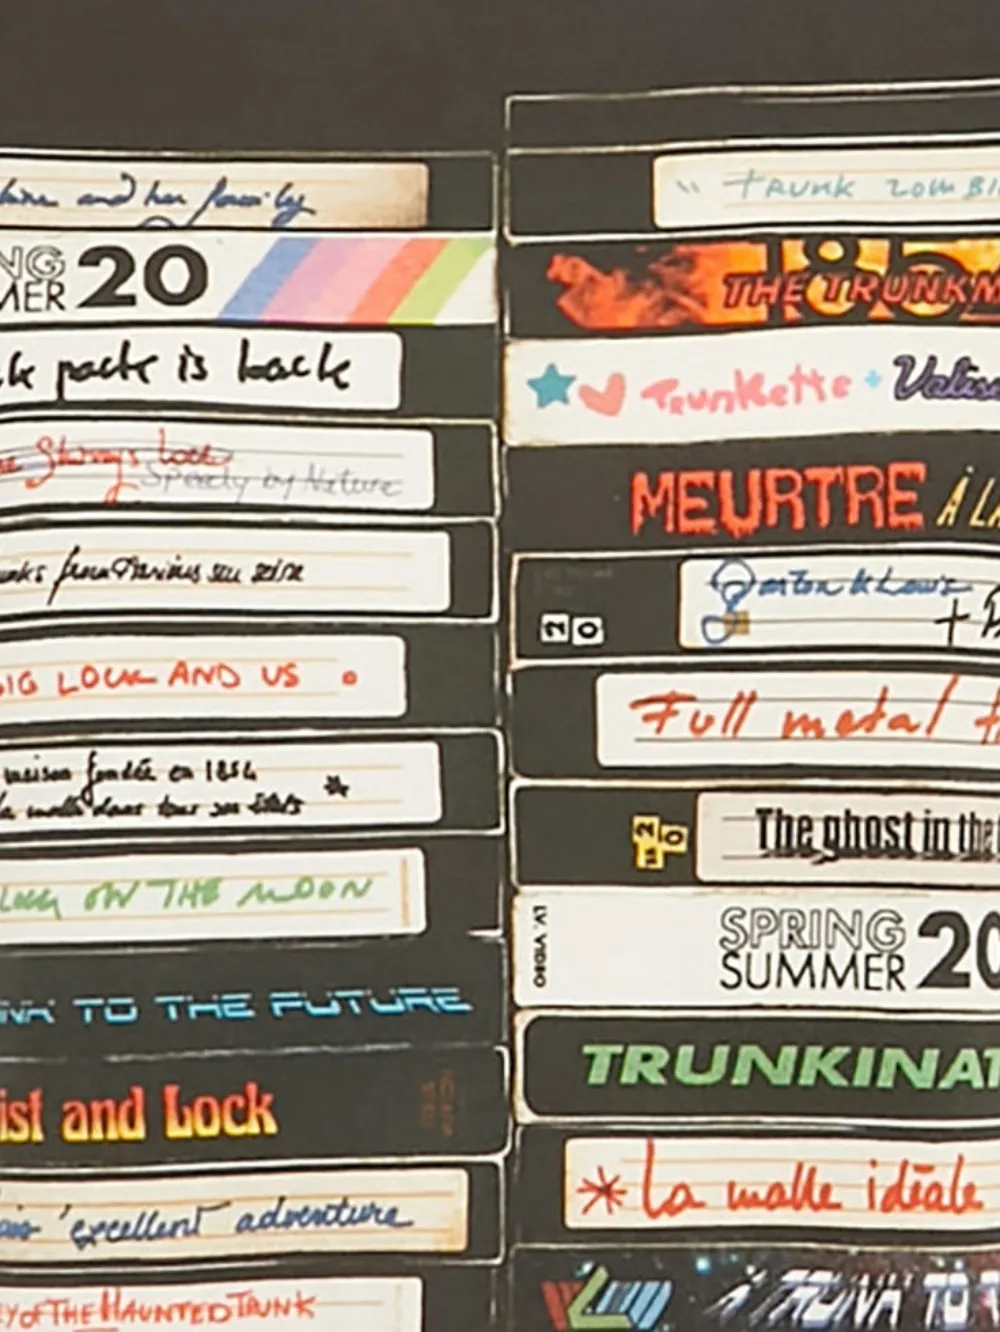 and her family
NG
MER 20
pack is back
Speedy by Nature
BIG LOCK AND US
maison fondée en 1854
la malle dans tous ses états
LOCK ON THE MOON
NK TO THE FUTURE
ist and Lock
'excellent' adventure
EY OF THE HAUNTED TRUNK
"TRUNK ZOMBI
185
THE TRUNKM
Trunkette + Valise
MEURTRE À LA
20
Gaston & Louis
+
Full metal t
20
The ghost in the
LV. VIDEO
SPRING
SUMMER 20
TRUNKINAT
* La malle idéale
A TRUNK TO